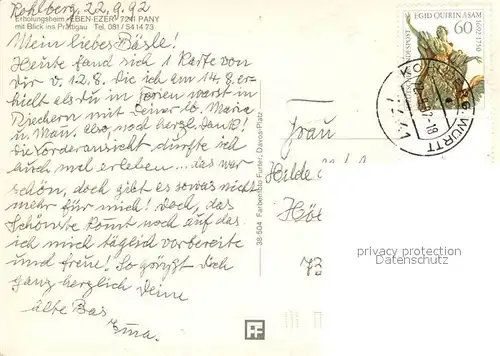 Kohlberg, 22.9.92
Erholungsheim EBEN-EZER 7241 PANY
mit Blick ins Prättigau Tel. 081/541473
Mein liebes Bäsle!
Heute fand sich 1 Karte von
Dir v. 12.8. die ich am 14.8. er-
hielt als Du in Ferien warst in
Riechern mit Deiner lb. Maria
u. Man. Also, noch herzl. Dank!
Die Vorderansicht durfte ich
auch mal erleben... das war
schön, doch gibt es sowas nicht
mehr für mich! Doch, das
Schönste kommt noch auf das
ich mich täglich vorbereite
und freue! So grüßt Dich
ganz herzlich Deine
alte Bas
Erna.
38-504 Farbenfoto Furter, Davos-Platz
EGID QUIRIN ASAM
1692-1750
60
DEUTSCHE BUNDESPOST
WÜRTT
Frau
Hilde
privacy protection
Datenschutz